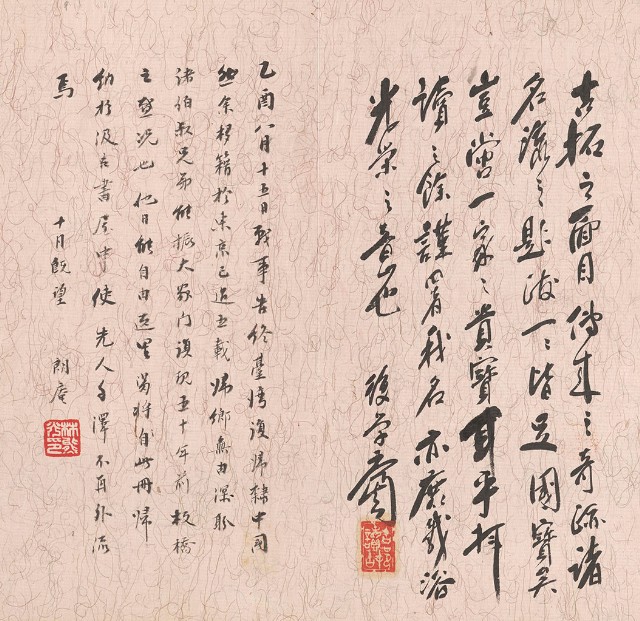 古拓之面目傳來之奇跡諸
名流之題跋一々皆足國寶矣
豈啻一家之貴寶耳乎拜
讀之餘謹署我名亦庶幾浴
光榮之意也 後學
乙酉八月十五日戰事告終臺灣復歸隸中國
然余移籍於東京已逾五載歸鄉無由深盼
諸伯叔兄弟能振大家門復現五十年前板橋
之盛況也他日能自由里當將自此冊歸
納於汲古書屋中使先人手澤不再外流
焉 十月既望 朗庵
林熊光印